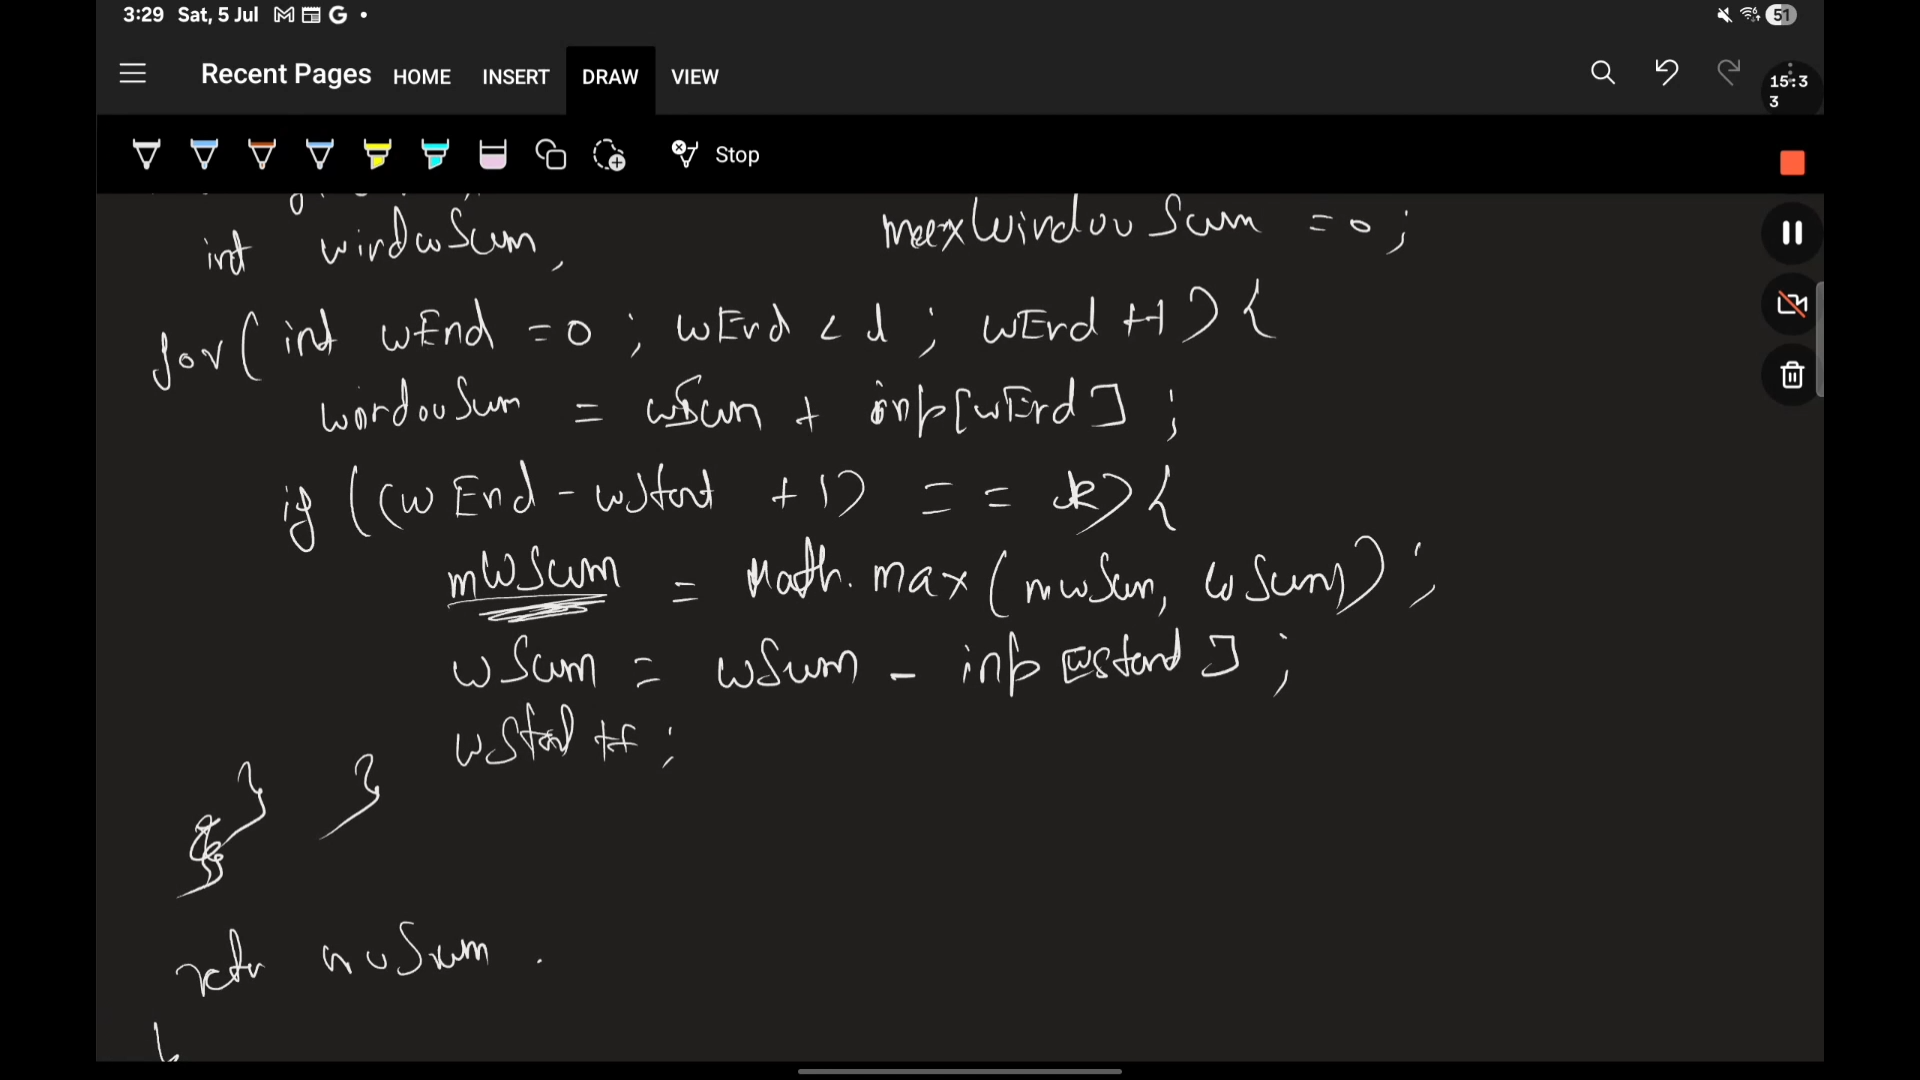 3:29 Sat, 5 Jul
51
Recent Pages HOME INSERT DRAW VIEW
15:3
3
Stop
int windowSum, maxWindowSum = 0;
for( int wEnd = 0 ; wEnd < l ; wEnd ++ ) {
windowSum = wSum + inp[wEnd] ;
if ((wEnd - wStart + 1) == k) {
mWSum = Math.max(mwSum, wSum) ;
wSum = wSum - inp[wStart] ;
wStart ++ ;
} }
mwSum .